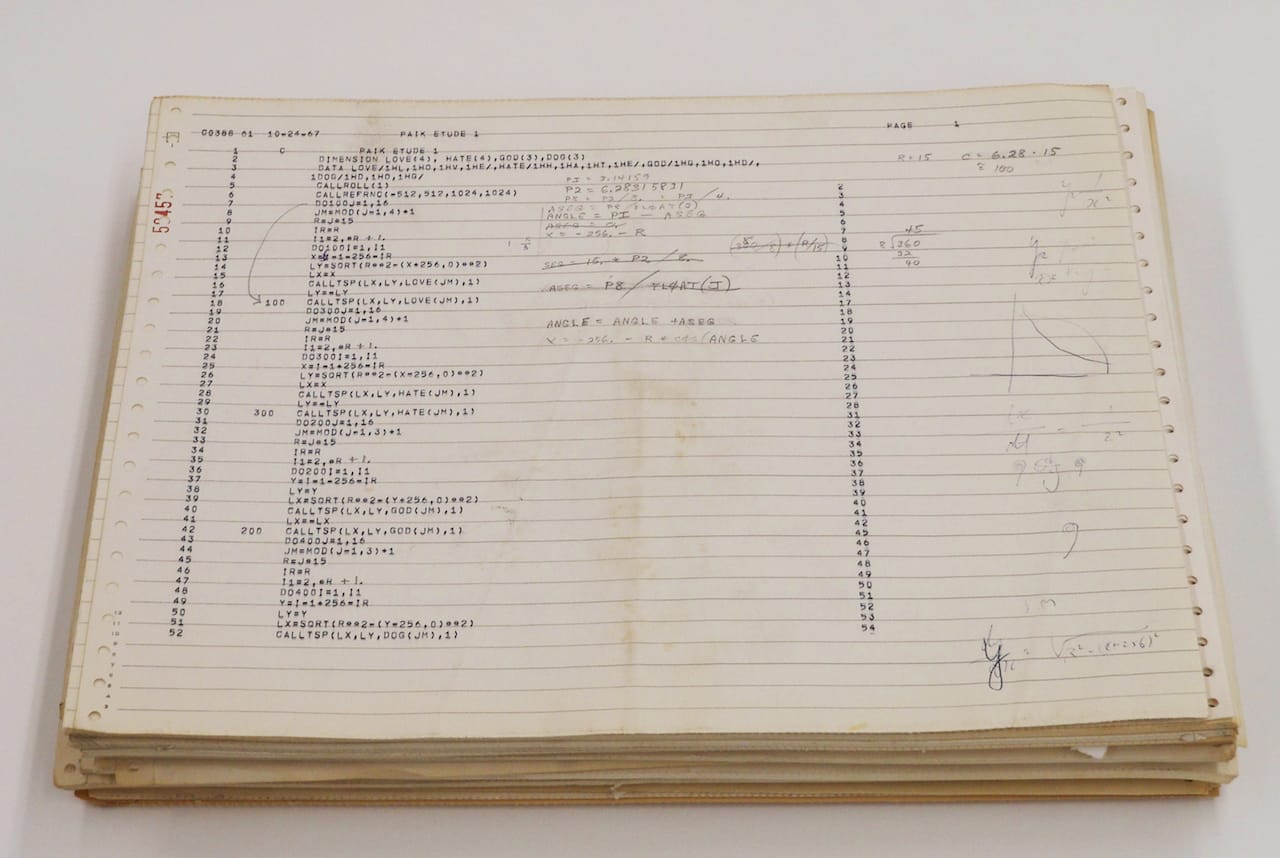 C0388 61 10-24-67 PAIK ETUDE 1 PAGE 1
1 C PAIK ETUDE 1
2 DIMENSION LOVE(4), HATE(4),GOD(3),DOG(3)
3 DATA LOVE/1HL,1HO,1HV,1HE/,HATE/1HH,1HA,1HT,1HE/,GOD/1HG,1HO,1HD/,
4 1DOG/1HD,1HO,1HG/
5 CALLROLL(1) 2
6 CALLREFRNC(-512,512,1024,1024) 3
7 DO100J=1,16 4
8 JM=MOD(J-1,4)+1 5
9 R=J*15 6
10 IR=R 7
11 I1=2.*R + 1. 8
12 DO100I=1,I1 9
13 X=I-1-256-IR 10
14 LY=SQRT(R**2-(X+256.0)**2) 11
15 LX=X 12
16 CALLTSP(LX,LY,LOVE(JM),1) 13
17 LY=-LY 14
18 100 CALLTSP(LX,LY,LOVE(JM),1) 17
19 DO300J=1,16 18
20 JM=MOD(J-1,4)+1 19
21 R=J*15 20
22 IR=R 21
23 I1=2.*R + 1. 22
24 DO300I=1,I1 23
25 X=I-1+256-IR 24
26 LY=SQRT(R**2-(X-256.0)**2) 25
27 LX=X 26
28 CALLTSP(LX,LY,HATE(JM),1) 27
29 LY=-LY 28
30 300 CALLTSP(LX,LY,HATE(JM),1) 31
31 DO200J=1,16 32
32 JM=MOD(J-1,3)+1 33
33 R=J*15 34
34 IR=R 35
35 I1=2.*R + 1. 36
36 DO200I=1,I1 37
37 Y=I-1-256-IR 38
38 LY=Y 39
39 LX=SQRT(R**2-(Y+256.0)**2) 40
40 CALLTSP(LX,LY,GOD(JM),1) 41
41 LX=-LX 42
42 200 CALLTSP(LX,LY,GOD(JM),1) 45
43 DO400J=1,16 46
44 JM=MOD(J-1,3)+1 47
45 R=J*15 48
46 IR=R 49
47 I1=2.*R + 1. 50
48 DO400I=1,I1 51
49 Y=I-1+256-IR 52
50 LY=Y 53
51 LX=SQRT(R**2-(Y-256.0)**2) 54
52 CALLTSP(LX,LY,DOG(JM),1)
PI = 3.14159
P2 = 6.28315831
ASEG = P8 / FLOAT(J)
ANGLE = PI - ASEG
X = -256. - R
SEG = 15. * P2 / 8.
ASEG = P8 / FLOAT(J)
ANGLE = ANGLE + ASEG
X = -256. - R * COS(ANGLE
R = 15 C = 6.28 · 15
≈ 100
45
8 360
32
40